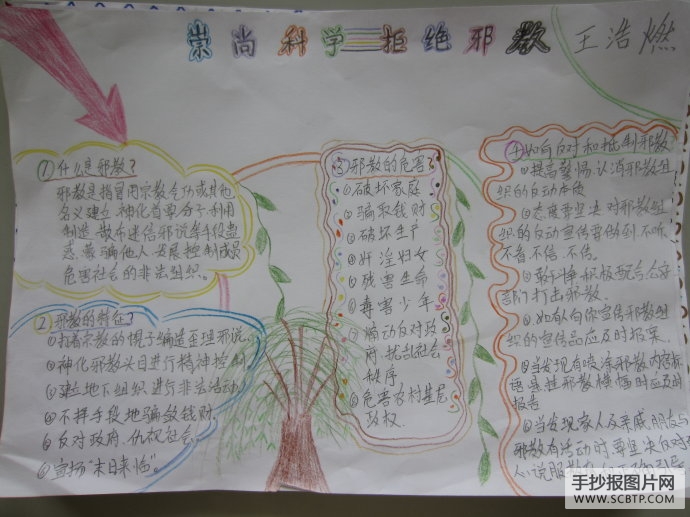 崇尚科学 拒绝邪教
王浩燃
①什么是邪教？
邪教是指冒用宗教气功或其他
名义建立神化首要分子利用
制造、散布迷信邪说等手段蛊
惑、蒙骗他人发展控制成员
危害社会的非法组织。
②邪教的特征？
①打着宗教的幌子编造歪理邪说。
②神化邪教头目进行精神控制
③建立地下组织进行非法活动
④不择手段地骗敛钱财
⑤反对政府、仇视社会
⑥宣扬“末日来临”。
③邪教的危害？
①破坏家庭
②骗取钱财
③破坏生产
④奸淫妇女
⑤残害生命
⑥毒害少年
⑦煽动反对政
府，扰乱社会
秩序
⑧危害农村基层
政权.
④如何反对和抵制邪教
①提高警惕，认清邪教组
织的反动本质
②态度要坚决对邪教组
织的反动宣传要做到，不听、
不看、不信、不传。
积极配合公安
部们打击邪教.
④如有人向你宣传邪教组
织的宣传品应及时报案.
⑤当发现有喷涂邪教内容标
语、悬挂邪教横幅时应及时
报告
⑥当发现家人及亲戚、朋友与
邪教有活动时,要坚决反对
手抄报图片网
WWW.SCBTP.COM